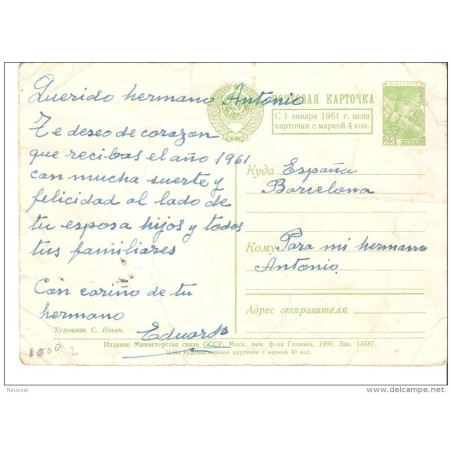 Querido hermano Antonio
Te deseo de corazon
que recibas el año 1961
con mucha suerte y
felicidad al lado de
tu esposa hijos y todos
tus familiares
Con cariño de tu
hermano
Eduardo
ПОЧТОВАЯ КАРТОЧКА
С 1 января 1961 г. цена
карточки с маркой 4 коп.
25
Куда España
Barcelona
Кому Para mi hermano
Antonio
Адрес отправителя
Художник С.
Издание Министерства связи СССР. Моск. печ. ф-ка Гознака. 1960. Зак. 14587.
Цена художественной карточки с маркой 40 коп.
Neussal
delcampe.net